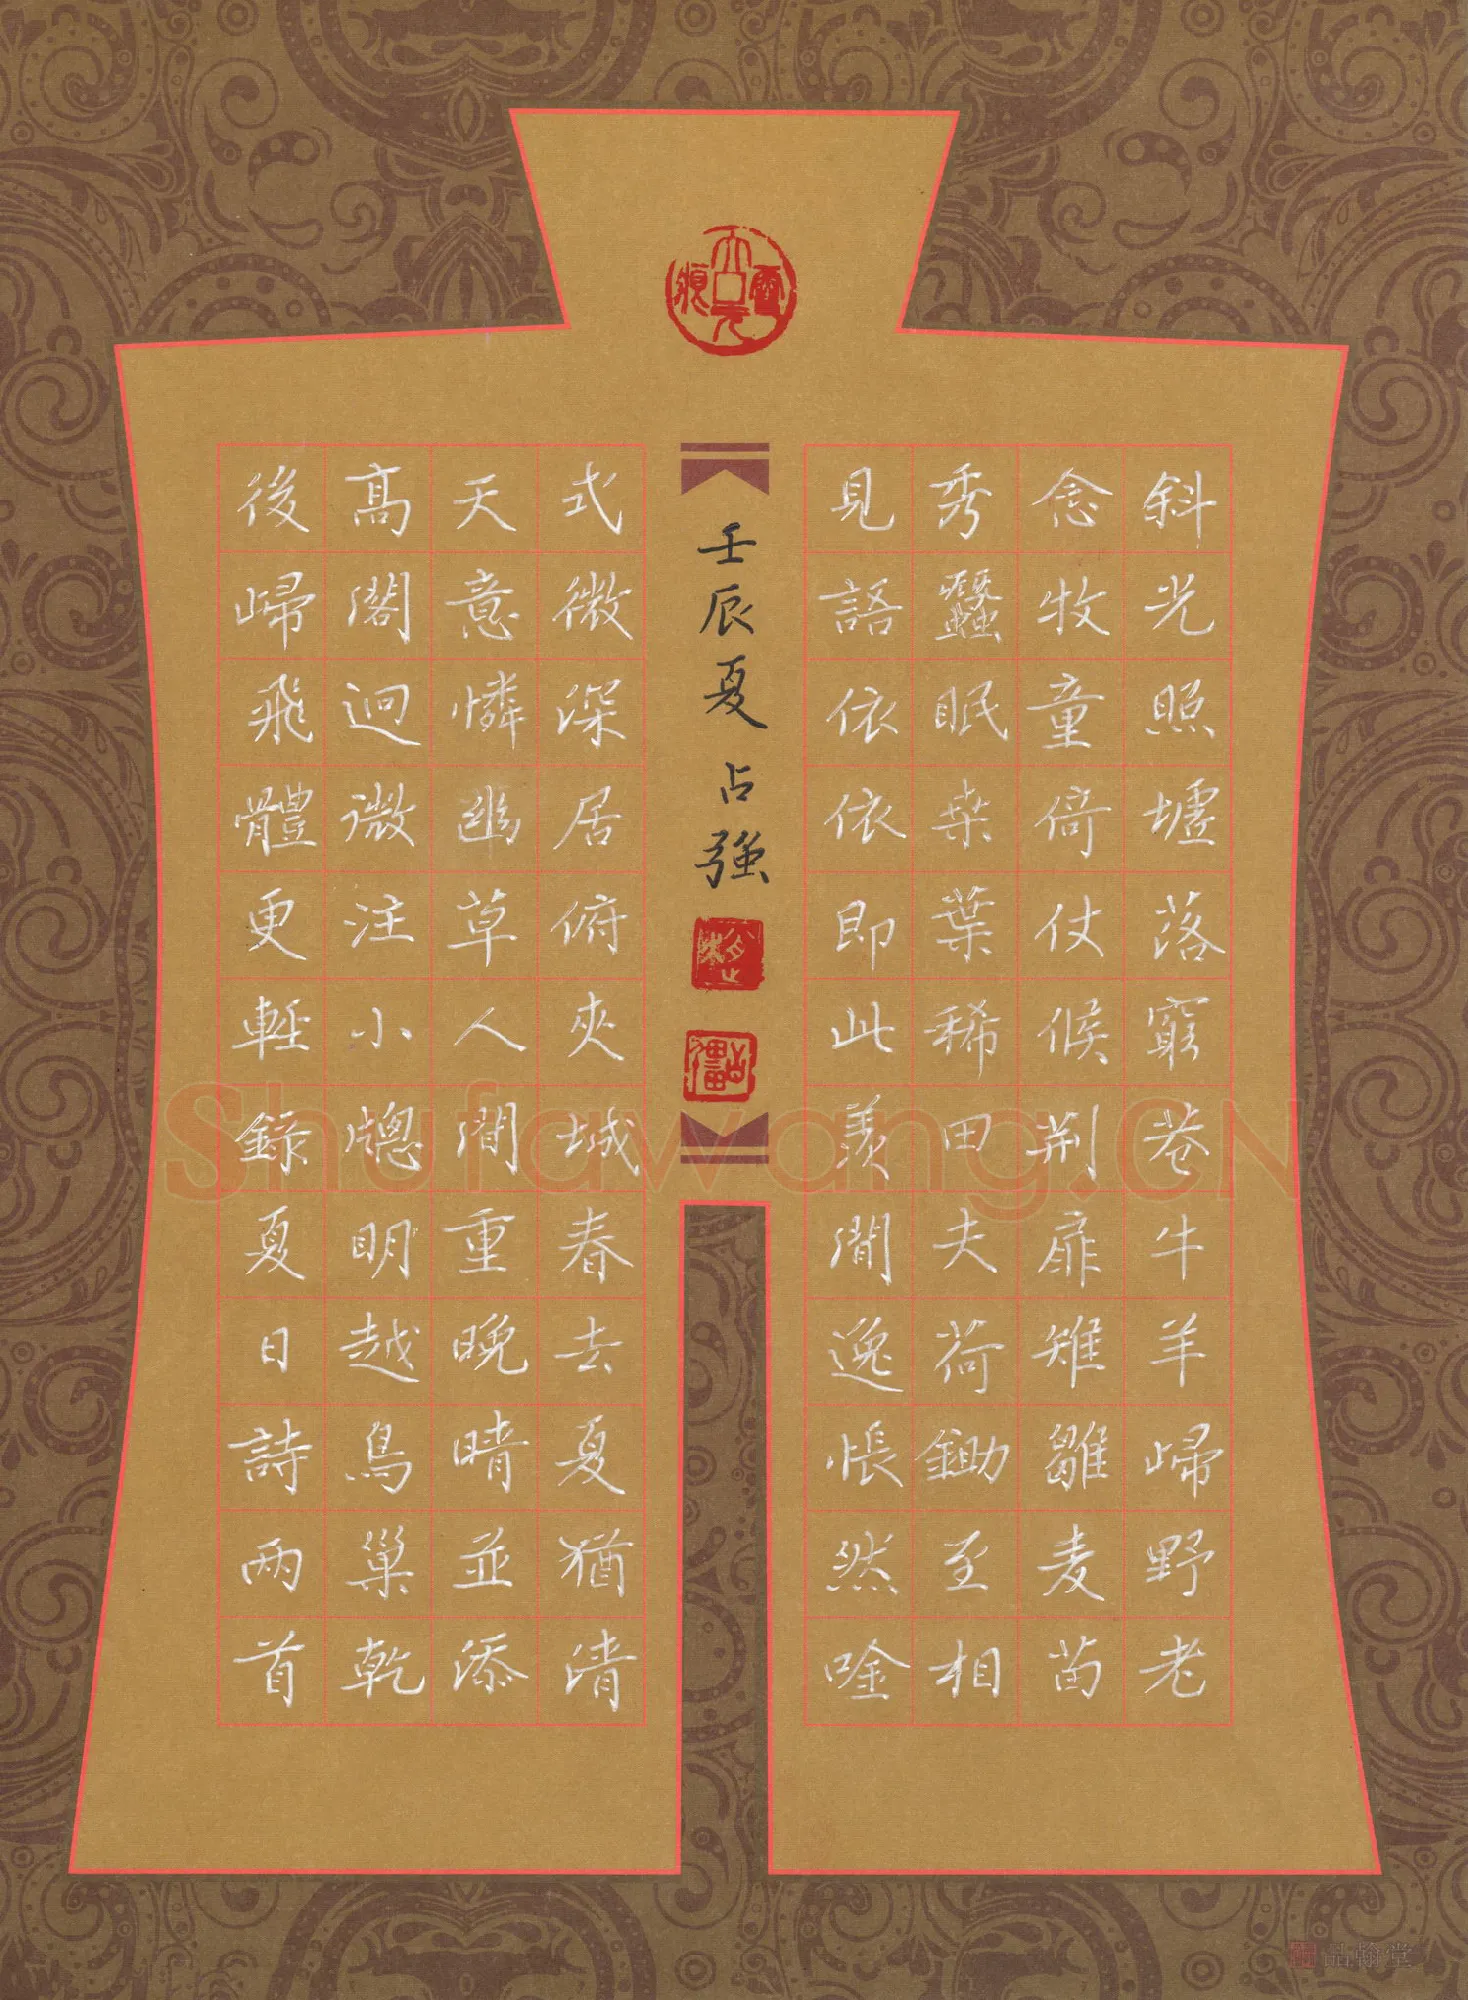 斜光照墟落窮巷牛羊歸野老
念牧童倚仗候荆扉雉雛麦苗
秀蠶眠桒葉稀田夫荷鋤至相
見語依依即此羨閒逸悵然唫
壬辰夏 占強
式微深居俯夾城春去夏猶清
天意憐幽草人間重晚晴並添
高閣迥微注小牕明越鳥巢乾
後歸飛體更輕錄夏日詩兩首
Shufawang.CN
品翰堂